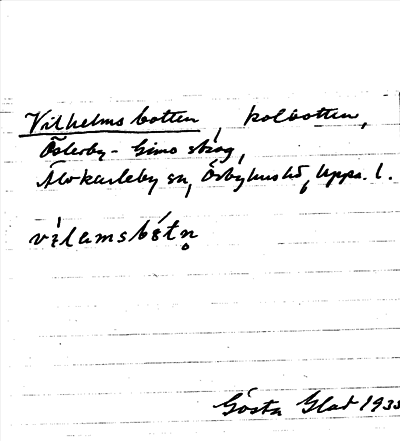 Vilhelmsbotten, kolbotten,
Österby-Gimo skog,
Älvkarleby sn, Örbyhus hd, Upps. l.
vìlamsbótn̥
Gösta Glad 1935